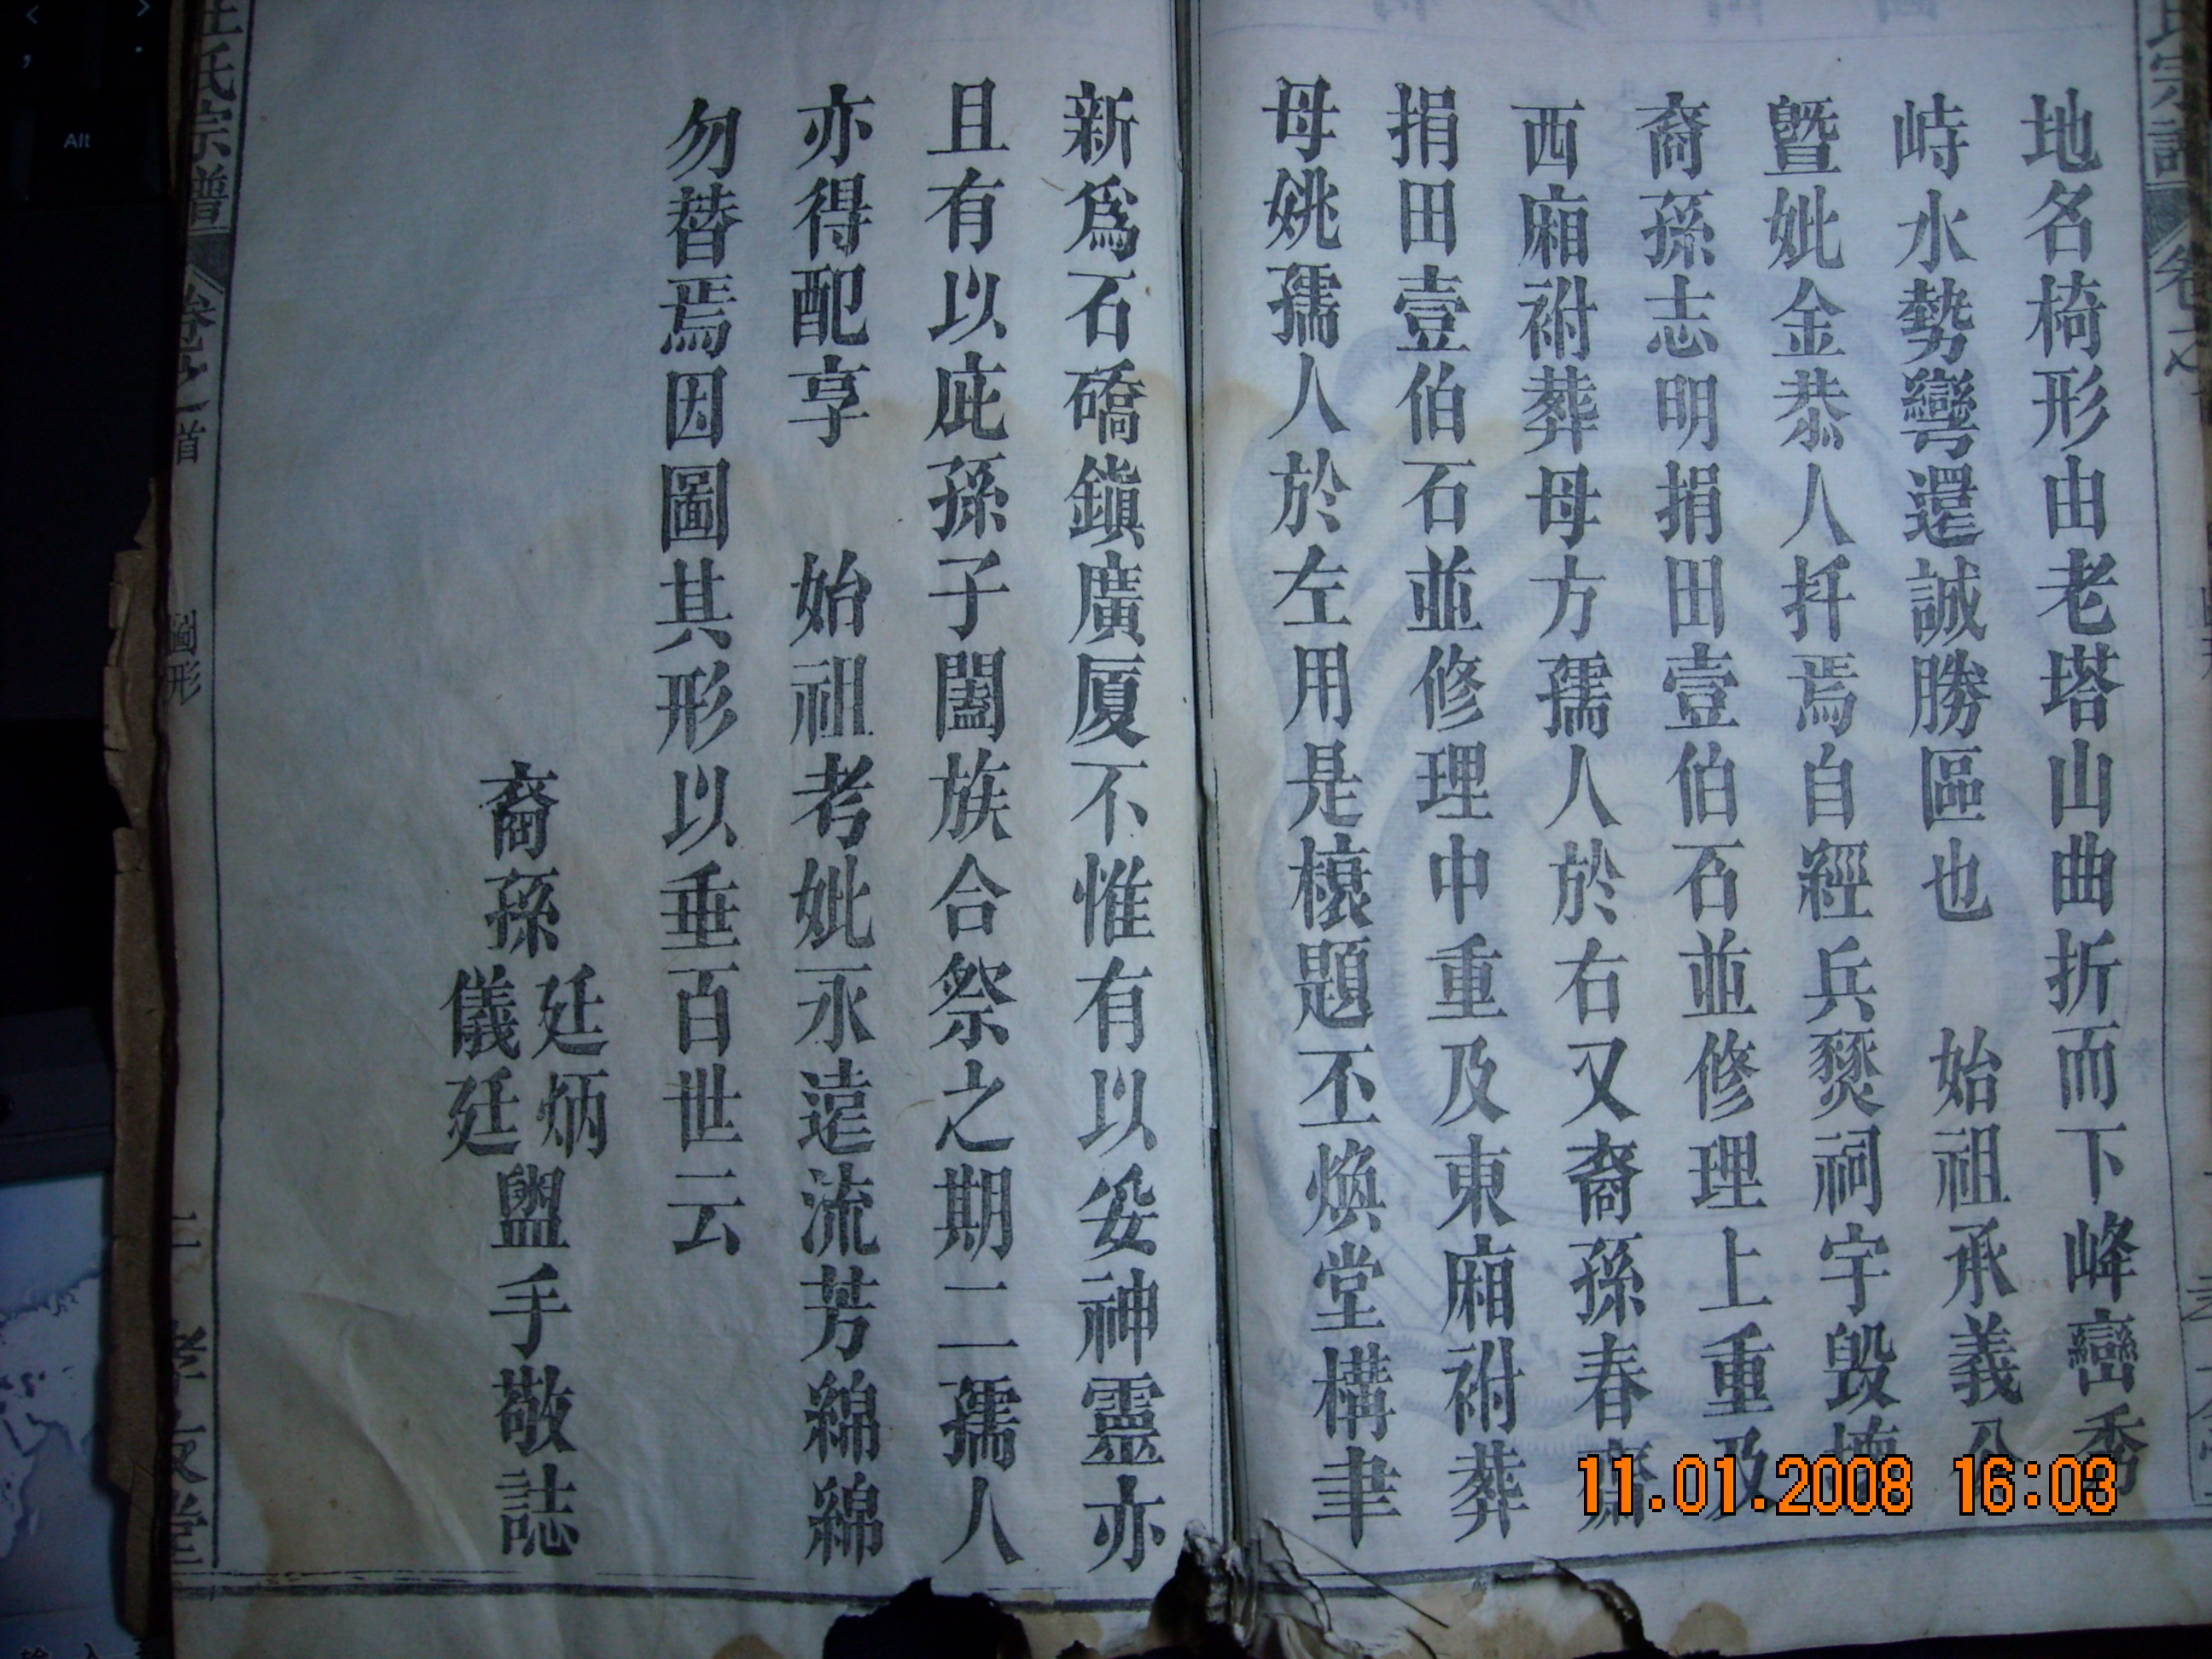 地名椅形由老塔山曲折而下峰巒秀
峙水勢彎還誠勝區也　始祖承義公
曁妣金恭人扦焉自經兵燹祠宇毀壞
裔孫志明捐田壹伯石並修理上重及
西廂祔葬母方孺人於右又裔孫春齋
捐田壹伯石並修理中重及東廂祔葬
母姚孺人於左用是榱題丕煥堂構聿
新爲石磽鎭廣厦不惟有以妥神靈亦
且有以庇孫子闔族合祭之期二孺人
亦得配享　始祖考妣永遠流芳綿綿
勿替焉因圖其形以垂百世云
裔孫 廷炳 儀廷 盥手敬誌
氏宗譜 卷之首 圖形 二 孝友堂
11.01.2008 16:03
Alt